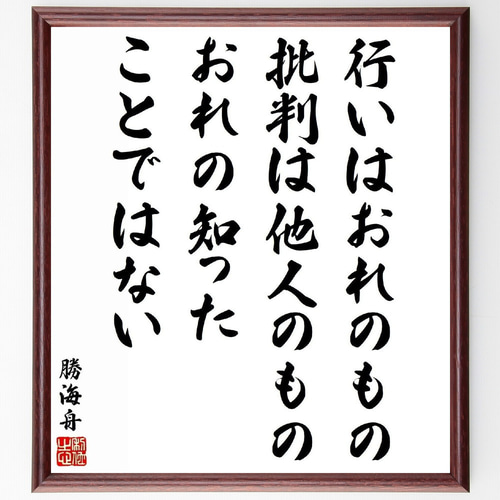 行いはおれのもの
批判は他人のもの
おれの知った
ことではない
勝海舟